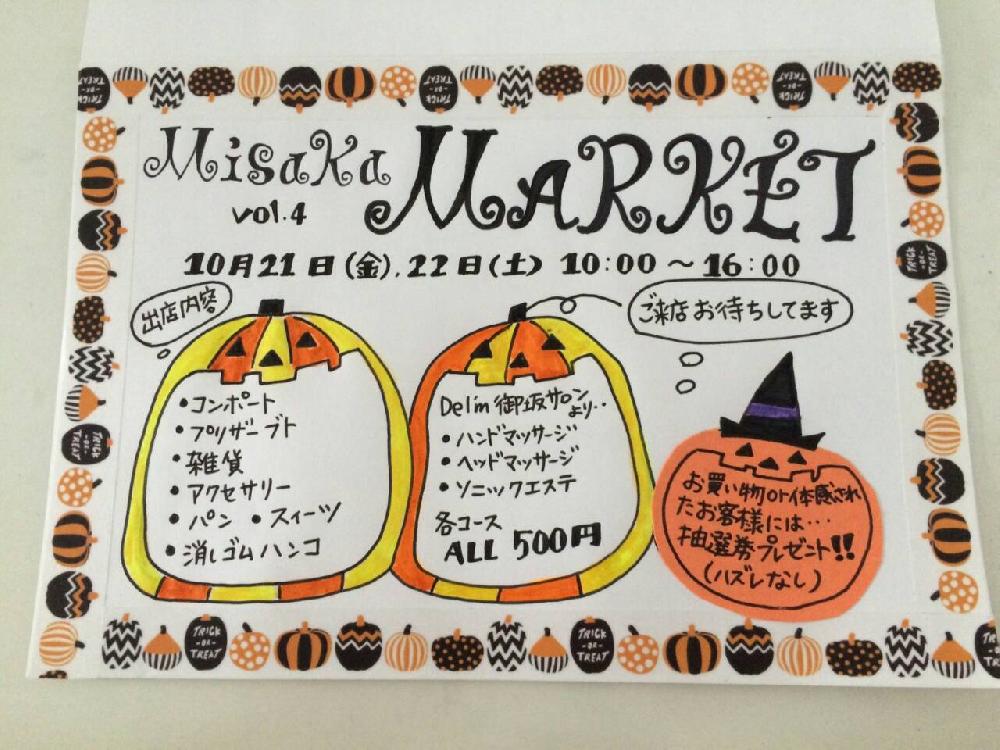 Misaka MARKET
vol.4
10月21日(金),22日(土) 10:00～16:00
出店内容
・コンポート
・プリザーブト
・雑貨
・アクセサリー
・パン ・スイーツ
・消しゴムハンコ
Delim御坂サロン
より…
・ハンドマッサージ
・ヘッドマッサージ
・ソニックエステ
各コース
ALL 500円
ご来店お待ちしてます
お買い物or体感され
たお客様には…
抽選券プレゼント!!
(ハズレなし)
TRICK
-OR-
TREAT